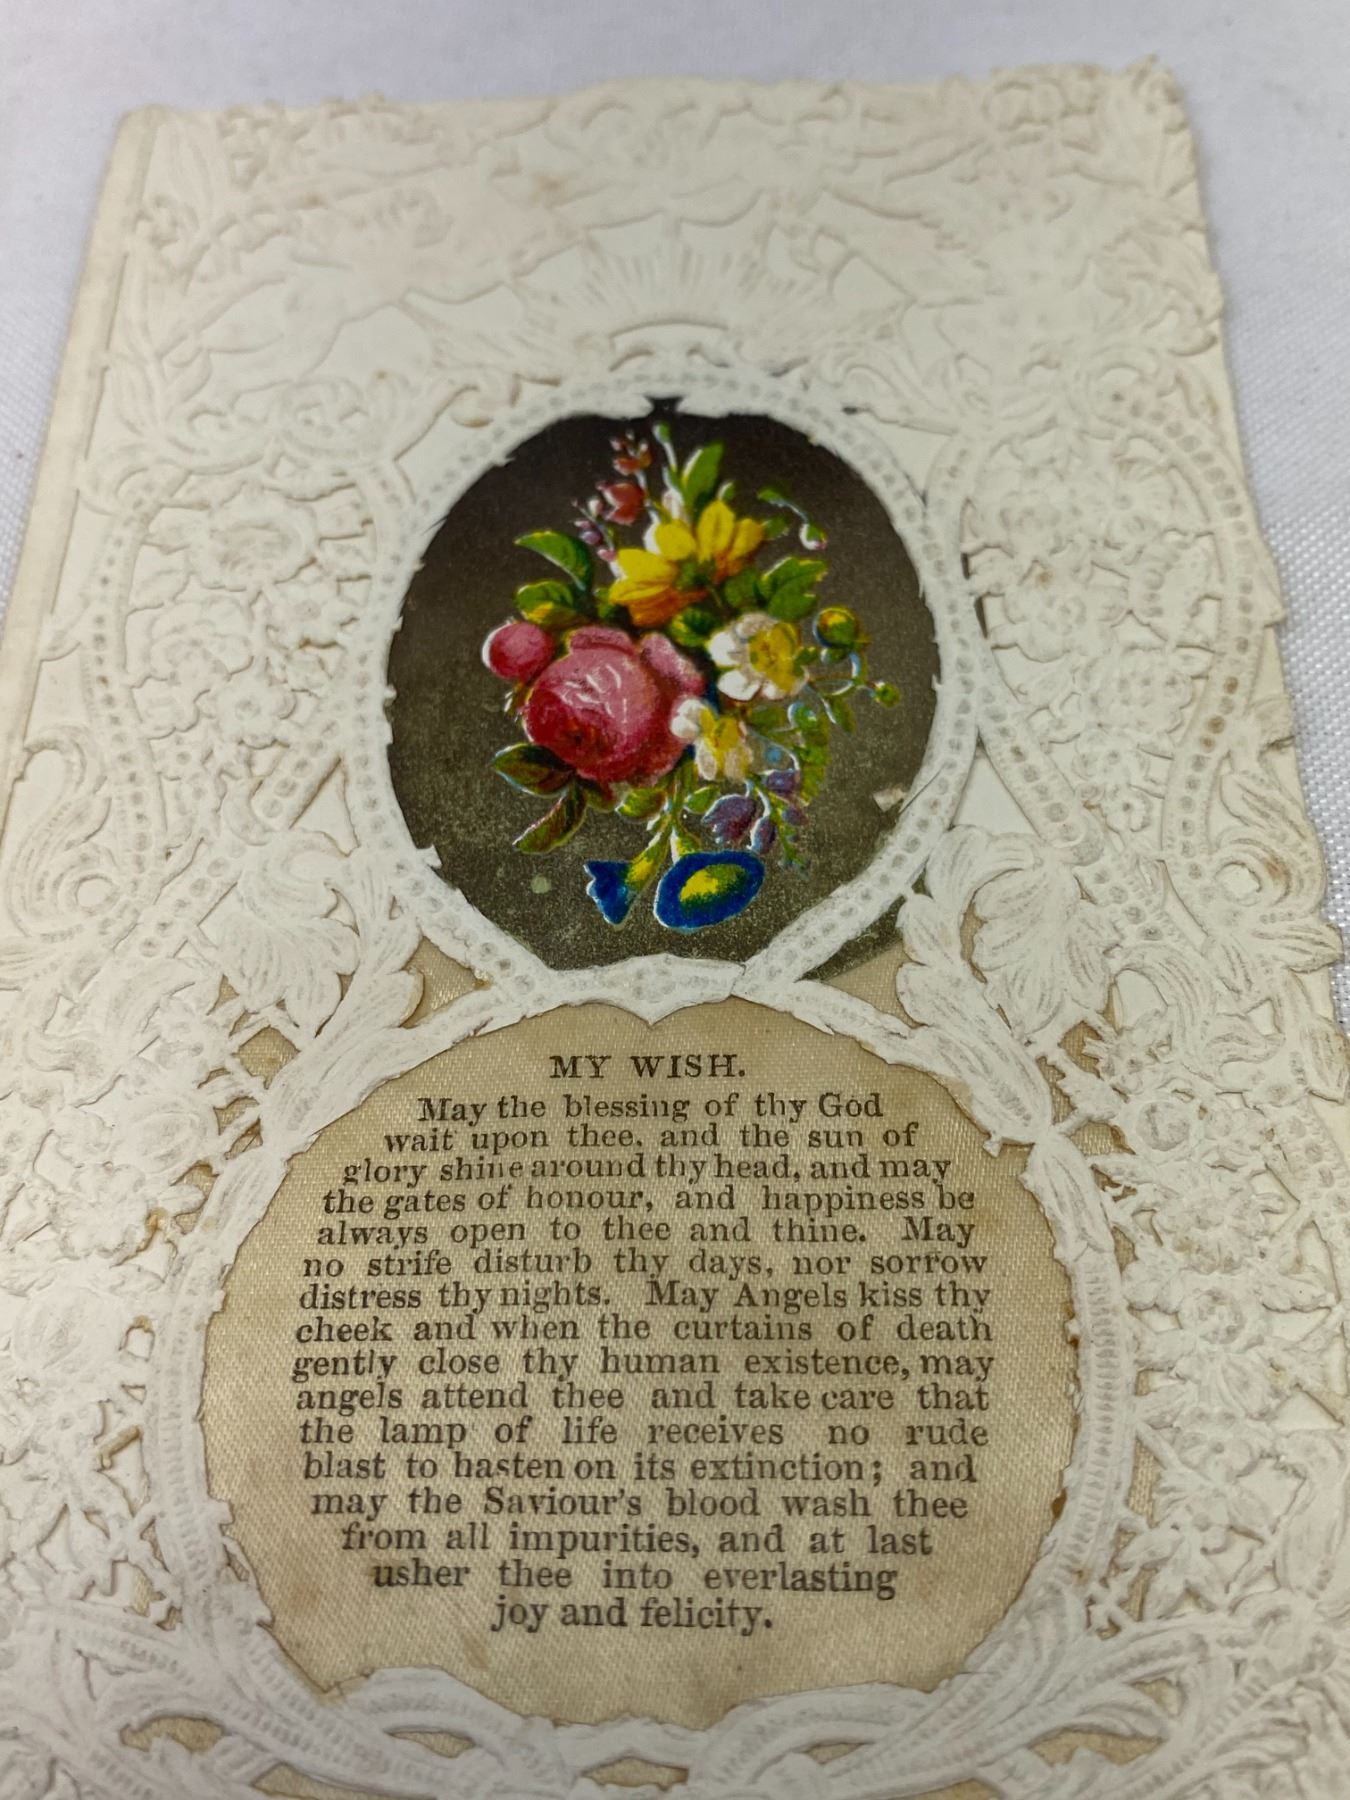 MY WISH.
May the blessing of thy God
wait upon thee, and the sun of
glory shine around thy head, and may
the gates of honour, and happiness be
always open to thee and thine. May
no strife disturb thy days, nor sorrow
distress thy nights. May Angels kiss thy
cheek and when the curtains of death
gently close thy human existence, may
angels attend thee and take care that
the lamp of life receives no rude
blast to hasten on its extinction; and
may the Saviour's blood wash thee
from all impurities, and at last
usher thee into everlasting
joy and felicity.